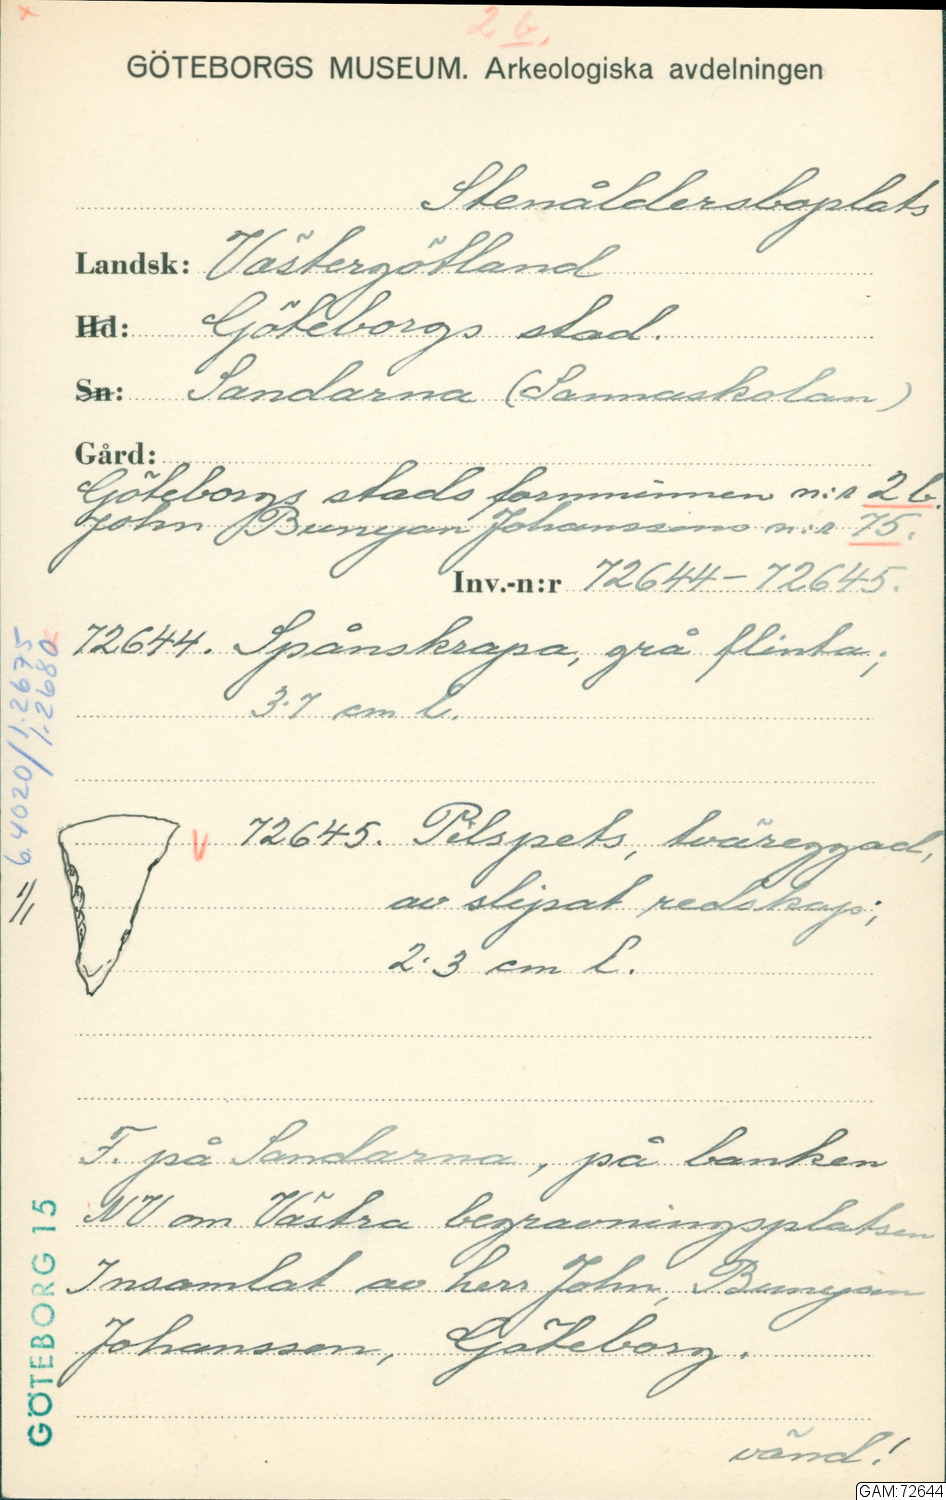 2 b.
GÖTEBORGS MUSEUM. Arkeologiska avdelningen
Stenåldersboplats
Landsk: Västergötland
Hd: Göteborgs stad.
Sn: Sandarna (Sannaskolan)
Gård:
Göteborgs stads fornminnen n:r 2 b.
John Bunyan Johanssons n:r 75.
Inv.-n:r 72644-72645.
72644. Spånskrapa, grå flinta;
3.7 cm l.
6.4020/1.2675
1.2680
72645. Pilspets, tväreggad,
av slipat redskap;
2.3 cm l.
1/1
F. på Sandarna, på banken
NV om Västra begravningsplatsen
Insamlat av herr John Bunyan
Johansson, Göteborg.
vänd!
GÖTEBORG 15
GAM:72644